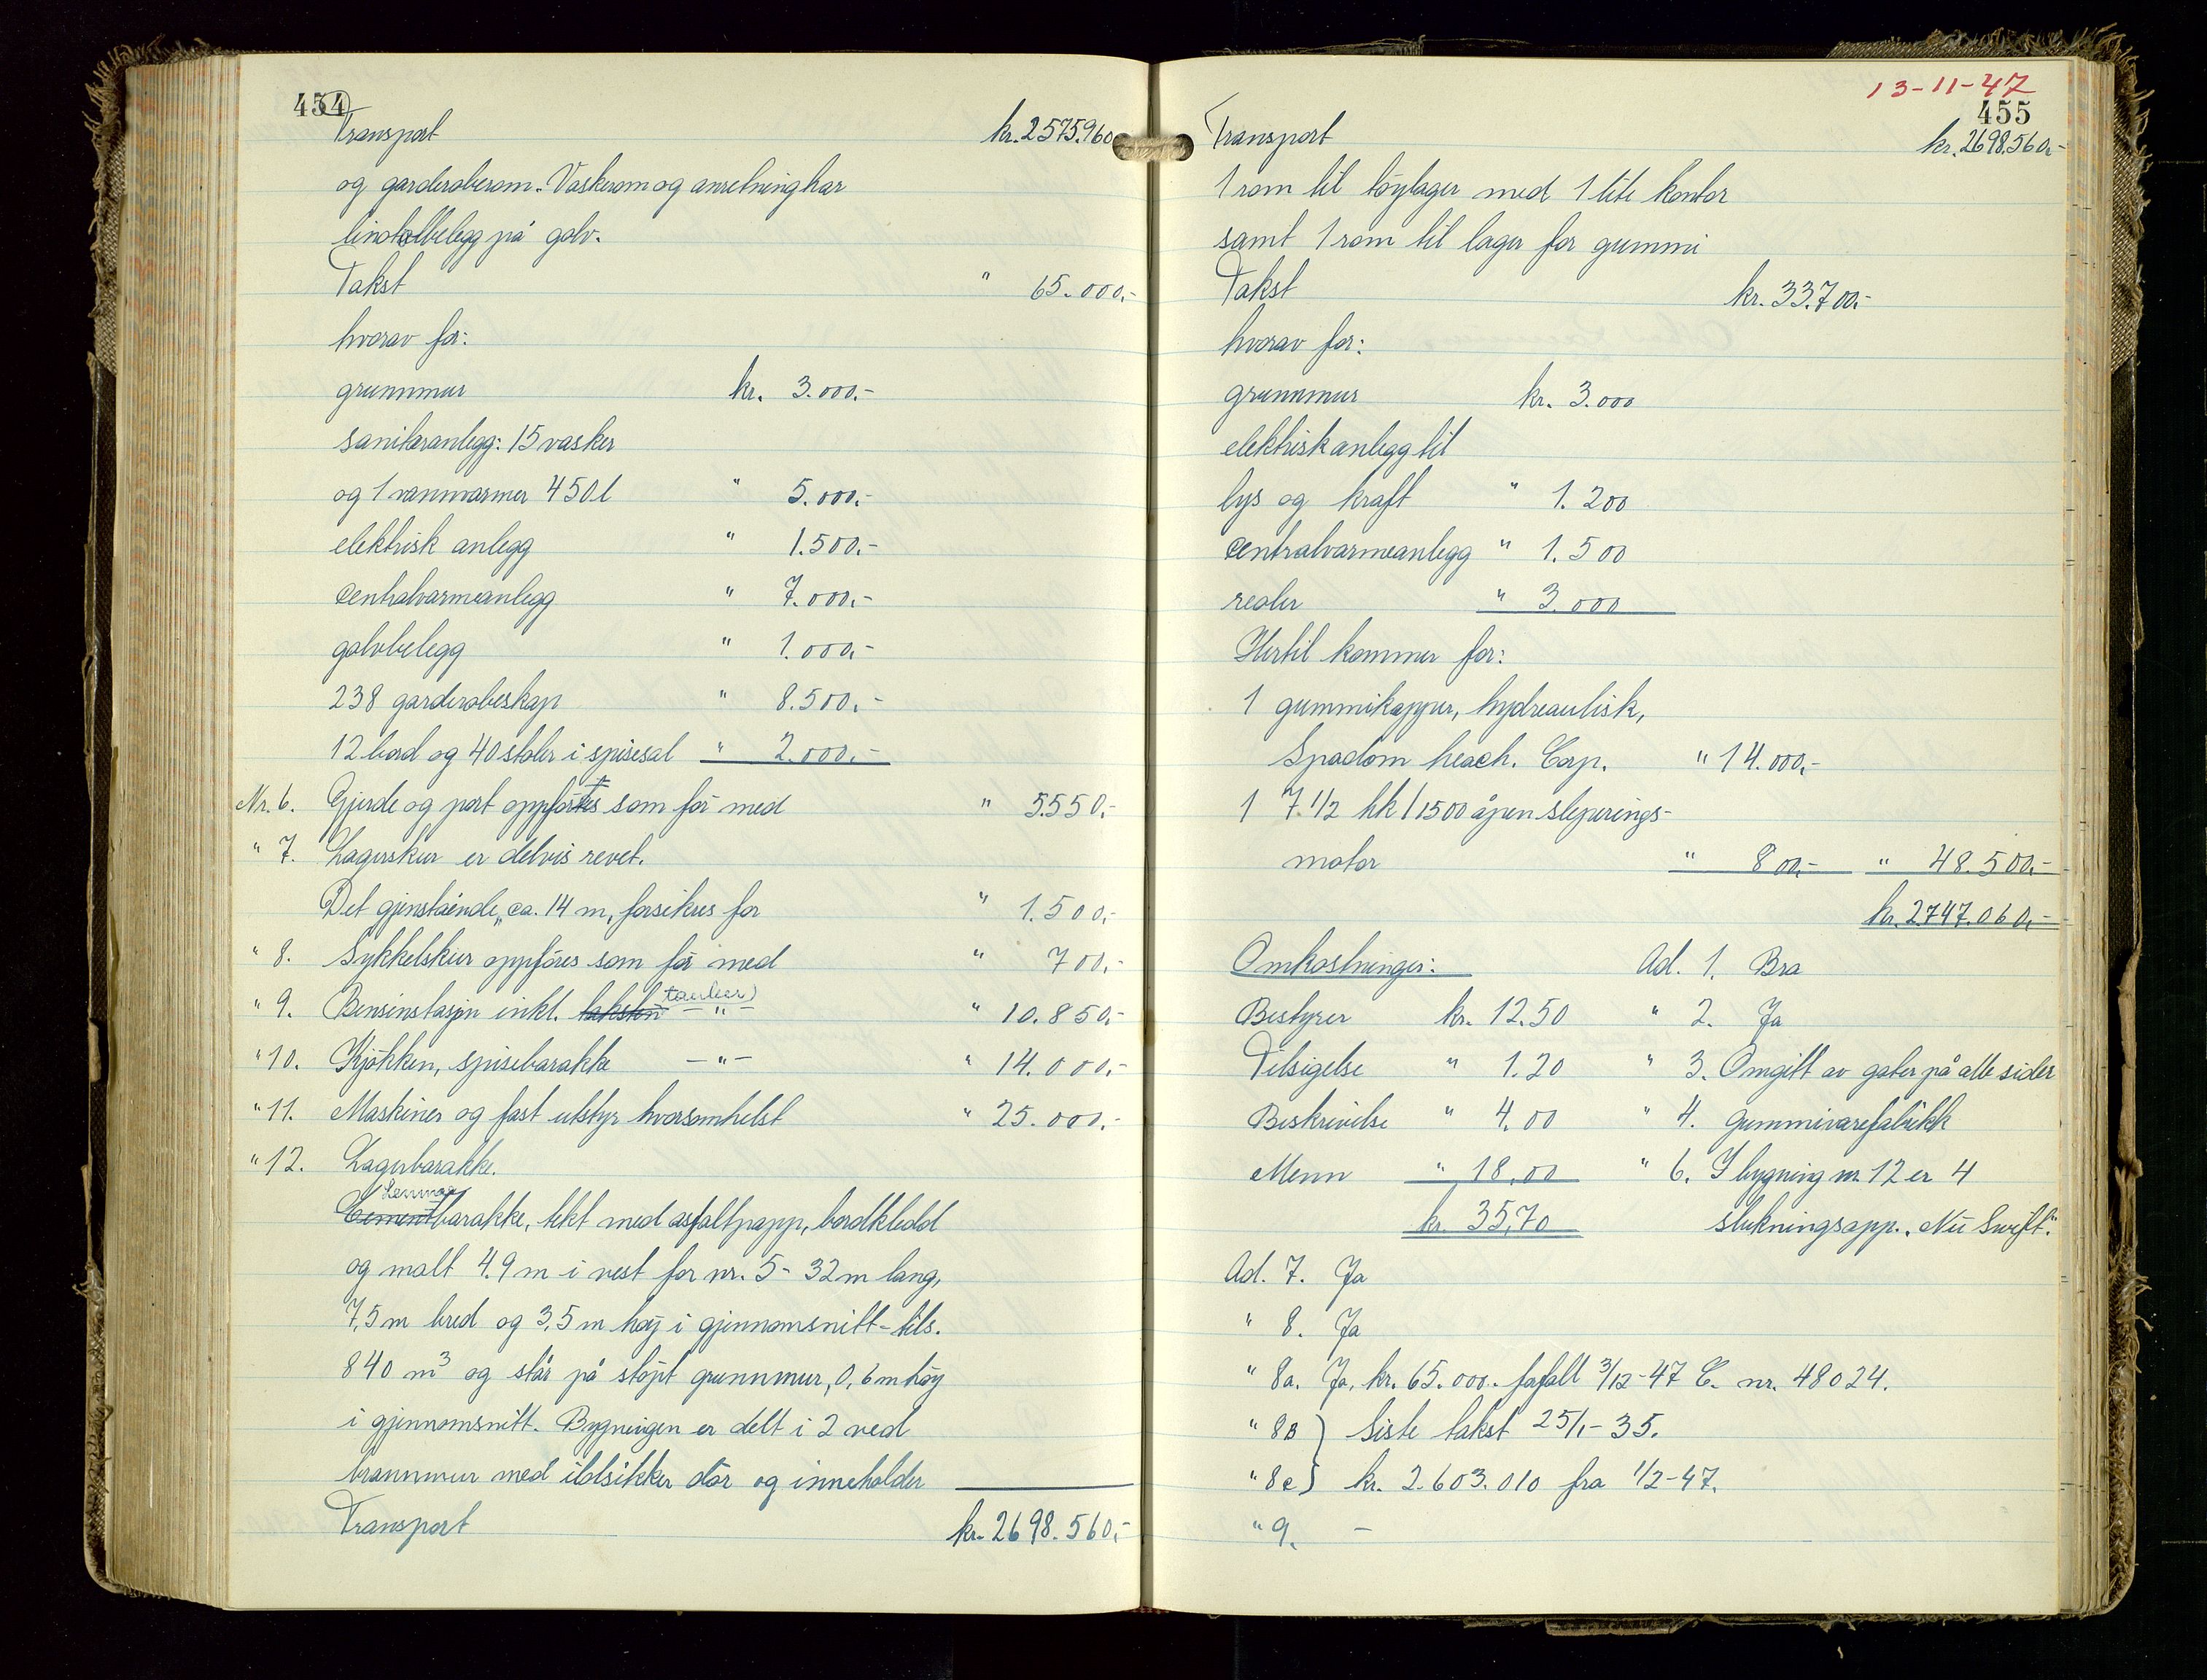 454
Transport kr. 2575.960
og garderoberom. Vaskerom og anretning har
linoleumbelegg på golv.
Takst " 65.000,-
hvorav for:
grunnmur kr. 3.000,-
sanitæranlegg: 15 vasker
og 1 vannvarmer 450 l " 5.000,-
elektrisk anlegg " 1.500,-
centralvarmeanlegg " 7.000,-
golvbelegg " 1.000,-
238 garderobeskap " 8.500,-
12 bord og 40 stoler i spisesal " 2.000,-
Nr. 6. Gjerde og port oppføres som før med " 5.550,-
" 7. Lagerskur er delvis revet.
Det gjenstående, ca. 14 m, forsikres for " 1.500,-
" 8. Sykkelskur oppføres som før med " 700,-
tanker)
" 9. Bensinstasjon inkl. taksten - " - " 10.850,-
" 10. Kjøkken, spisebarakke - " - " 14.000,-
" 11. Maskiner og fast utstyr hvorsomhelst " 25.000,-
" 12. Lagerbarakke.
Lemmer
Cementbarakke, tekt med asfaltpapp, bordkledd
og malt 4.9 m i vest for nr. 5 - 32 m lang,
7,5 m bred og 3,5 m høy i gjennomsnitt - tils.
840 m³ og står på støpt grunnmur, 0,6 m høy
i gjennomsnitt. Bygningen er delt i 2 ved
brannmur med ildsikker dør og inneholder
Transport kr. 2698.560,-
13-11-47
455
Transport kr. 2698.560,-
1 rom til tøylager med 1 lite kontor
samt 1 rom til lager for gummi
Takst kr. 33.700,-
hvorav for:
grunnmur kr. 3.000
elektrisk anlegg til
lys og kraft " 1.200
centralvarmeanlegg " 1.500
reoler " 3.000
Hertil kommer for:
1 gummikapper, hydreaulisk,
Spadom heach. Corp. " 14.000,-
1 7 1/2 hk / 1500 åpen sleperings-
motor " 800,- " 48.500,-
kr. 2747.060,-
Omkostninger: Ad. 1. Bra
Bestyrer kr. 12.50 " 2. Ja
Tilsigelse " 1.20 " 3. Omgitt av gater på alle sider
Beskrivelse " 4.00 " 4. gummivarefabrikk
Menn " 18.00 " 6. I bygning nr. 12 er 4
kr. 35,70 slukningsapp. "Nu Swift".
Ad. 7. Ja
" 8. Ja
" 8a. Ja, kr. 65.000.- fafalt 3/12-47 C. nr. 48024.
" 8B } Siste takst 25/1-35.
" 8c } kr. 2.603.010 fra 1/2-47.
" 9. -